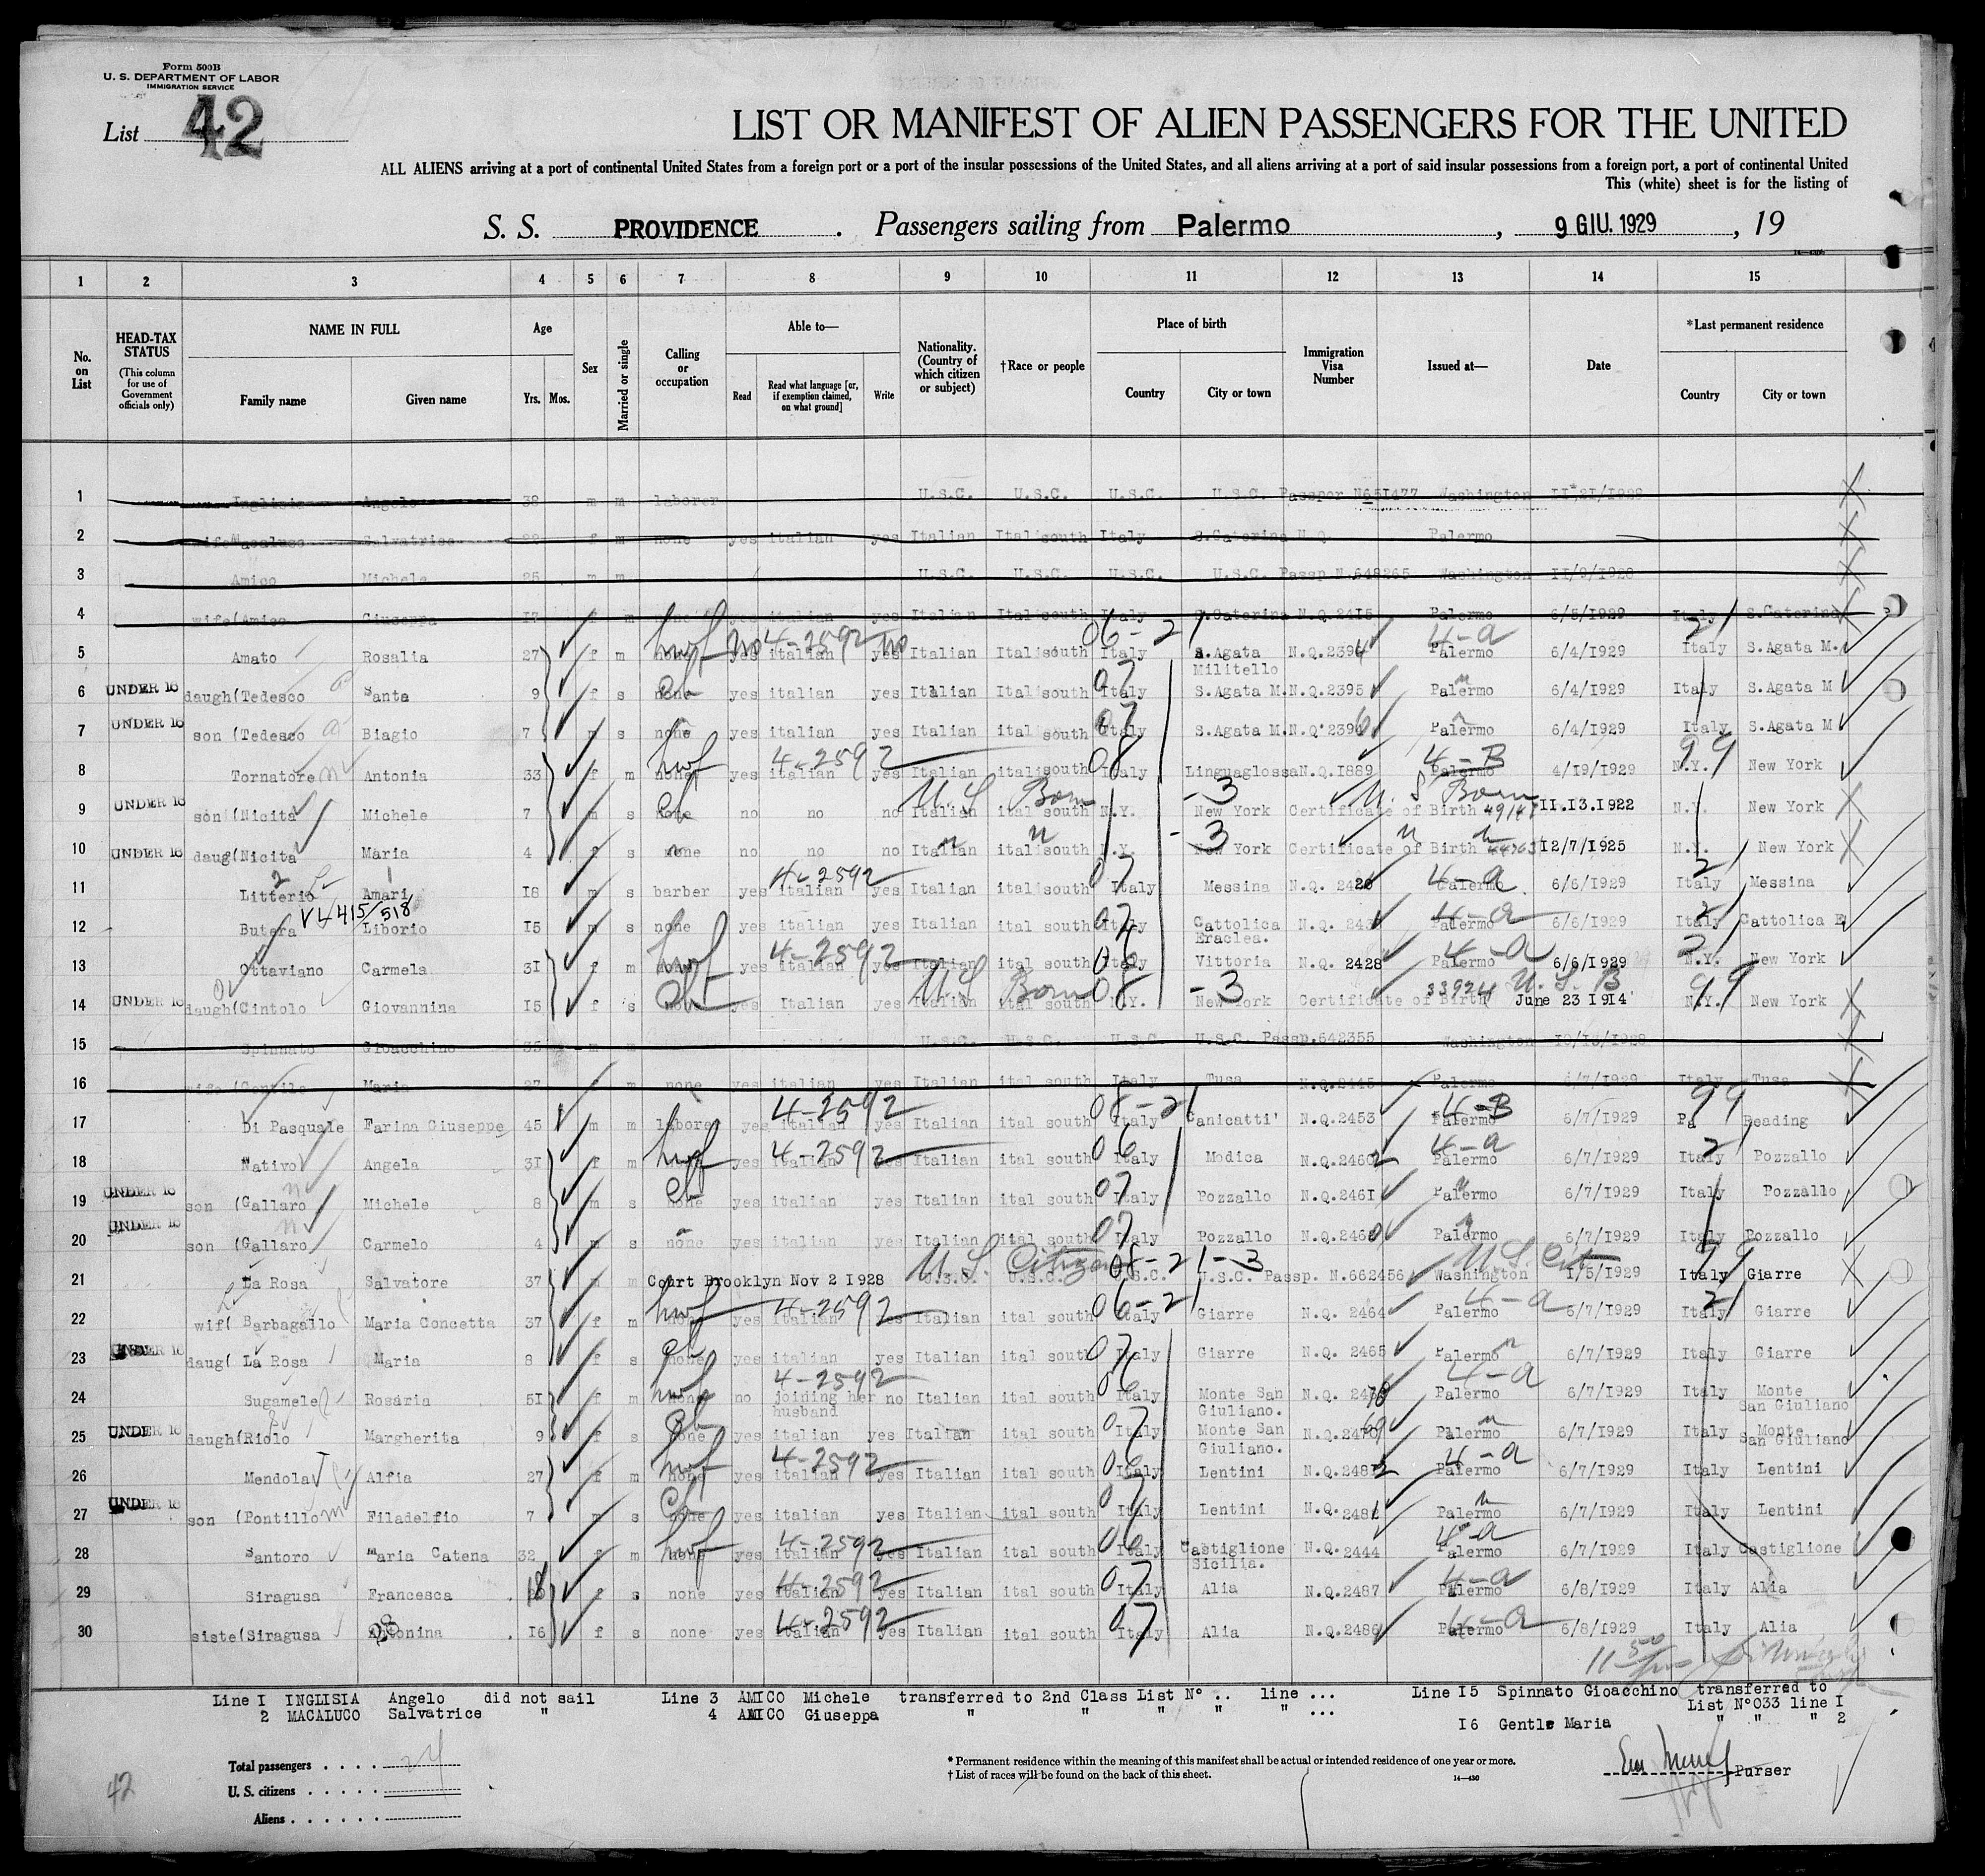 Form 500B
U. S. DEPARTMENT OF LABOR
IMMIGRATION SERVICE
List 42
LIST OR MANIFEST OF ALIEN PASSENGERS FOR THE UNITED
ALL ALIENS arriving at a port of continental United States from a foreign port or a port of the insular possessions of the United States, and all aliens arriving at a port of said insular possessions from a foreign port, a port of continental United
This (white) sheet is for the listing of
S. S. PROVIDENCE . Passengers sailing from Palermo , 9 GIU. 1929 , 19
1 2 3 4 5 6 7 8 9 10 11 12 13 14 15
No. on List HEAD-TAX STATUS (This column for use of Government officials only) NAME IN FULL Family name Given name Age Yrs. Mos. Sex Married or single Calling or occupation Able to— Read Read what language [or, if exemption claimed, on what ground] Write Nationality. (Country of which citizen or subject) †Race or people Place of birth Country City or town Immigration Visa Number Issued at— Date *Last permanent residence Country City or town
1 Inglisia Angelo 38 m m laborer U.S.C. U.S.C. U.S.C. U.S.C. Passpor N651477 Washington
2 wife Macaluco Salvatrice f m none yes italian yes Italian Ital south Italy S.Caterina N.Q. Palermo
3 Amico Michele 25 m m U.S.C. U.S.C. U.S.C. U.S.C. Passp N.648265 Washington 11/9/1928
4 wife(Amico Giuseppa 17 f m yes italian yes Italian Ital south Italy S.Caterina N.Q.2415 Palermo 6/5/1929 Italy S.Caterina
5 Amato Rosalia 27 f m none hwf yes no italian 4-2592 yes no Italian Ital south Italy 06-21 S.Agata Militello N.Q.2394 Palermo 4-a 6/4/1929 Italy 21 S.Agata M.
6 UNDER 16 daugh(Tedesco Santa 9 f s none ch yes italian yes Italian Ital south Italy 07 S.Agata M. N.Q.2395 Palermo " 6/4/1929 Italy S.Agata M
7 UNDER 16 son (Tedesco Biagio 7 m s none yes italian yes Italian ital south Italy 07 S.Agata M. N.Q.2396 Palermo 6/4/1929 Italy S.Agata M
8 Tornatore Antonia 33 f m none hwf yes italian 4-2592 yes Italian ital south Italy 08 Linguaglossa N.Q.1889 Palermo 4-B 4/19/1929 N.Y. 99 New York
9 UNDER 16 son (Nicita Michele 7 m s none ch no no no Italian ital south U.S. Born N.Y. New York -3 Certificate of Birth U.S. Born 11.13.1922 N.Y. New York
10 UNDER 16 daug(Nicita Maria 4 f s none no no no Italian ital south N.Y. New York -3 Certificate of Birth 12/7/1925 N.Y. New York
11 Litterio Amari 18 m s barber yes italian 4-2592 yes Italian ital south Italy 07 Messina N.Q. 2426 Palermo 4-a 6/6/1929 Italy 21 Messina
12 Butera V4415/518 Liborio 15 m s none yes italian yes Italian ital south Italy 07 Cattolica Eraclea. N.Q. Palermo 4-a 6/6/1929 Italy 21 Cattolica E
13 Ottaviano Carmela 31 f m hwf yes italian 4-2592 yes Italian ital south Italy 06 Vittoria N.Q. 2428 Palermo 4-a 6/6/1929 N.Y. New York
14 UNDER 16 daugh(Cintolo Giovannina 15 f s none yes Italian yes Italian ital south U.S. Born N.Y. 08 New York -3 Certificate of Birth 33924 U.S. B June 23 1914 N.Y. 99 New York
15 Spinnato Gioacchino 35 m m U.S.C. U.S.C. U.S.C. U.S.C. Passp.642355 Washington 10/16/1928
16 wife (Gentile Maria 27 f m none yes italian yes Italian ital south Italy Tusa N.Q.2445 Palermo 6/7/1929 Italy Tusa
17 Di Pasquale Farina Giuseppe 45 m m laborer yes italian 4-2592 yes Italian ital south Italy 08-21 Canicatti' N.Q.2453 Palermo 4-B 6/7/1929 Pa 99 Reading
18 Nativo Angela 31 f m hwf yes italian 4-2592 yes Italian ital south Italy 06 Modica N.Q.2462 Palermo 4-a 6/7/1929 Italy 21 Pozzallo
19 UNDER 16 son (Gallaro Michele 8 m s none ch yes italian yes Italian ital south Italy 07 Pozzallo N.Q.2461 Palermo " 6/7/1929 Italy Pozzallo
20 UNDER 16 son (Gallaro Carmelo 4 m s none yes italian yes Italian ital south Italy 07 Pozzallo N.Q.2460 Palermo 6/7/1929 Italy Pozzallo
21 La Rosa Salvatore 37 m m Court Brooklyn Nov 2 1928 U.S. Citizen U.S.C. U.S.C. U.S.C. 08-21-3 U.S.C. Passp. N.662456 Washington U.S. Cit 1/5/1929 Italy 99 Giarre
22 wif( Barbagallo Maria Concetta 37 f m none hwf yes italian 4-2592 yes Italian ital south Italy 06-21 Giarre N.Q. 2464 Palermo 4-a 6/7/1929 Italy 21 Giarre
23 UNDER 16 daug( La Rosa Maria 8 f s none ch yes italian yes Italian ital south Italy 07 Giarre N.Q. 2465 Palermo " 6/7/1929 Italy Giarre
24 Sugamele Rosaria 51 f m none hwf no joining her husband 4-2592 no Italian ital south Italy 06 Monte San Giuliano. N.Q. 2470 Palermo 4-a 6/7/1929 Italy Monte San Giuliano
25 UNDER 16 daugh(Riolo Margherita 9 f s none ch yes italian yes Italian ital south Italy 07 Monte San Giuliano. N.Q.2469 Palermo " 6/7/1929 Italy Monte San Giuliano
26 Mendola Alfia 27 f m none hwf yes italian 4-2592 yes Italian ital south Italy 06 Lentini N.Q.2482 Palermo 4-a 6/7/1929 Italy Lentini
27 UNDER 16 son (Pontillo Filadelfio 7 m s none ch yes italian yes Italian ital south Italy 07 Lentini N.Q.2481 Palermo " 6/7/1929 Italy Lentini
28 Santoro Maria Catena 32 f m none hwf yes italian 4-2592 yes Italian ital south Italy 06 Castiglione Sicilia. N.Q.2444 Palermo 4-a 6/7/1929 Italy Castiglione
29 Siragusa Francesca 18 f s none yes italian 4-2592 yes Italian ital south Italy 07 Alia N.Q.2487 Palermo 4-a 6/8/1929 Italy Alia
30 siste(Siragusa Antonina 16 f s none yes italian 4-2592 yes Italian ital south Italy 07 Alia N.Q.2486 Palermo 4-a 6/8/1929 Italy Alia
Line 1 INGLISIA Angelo did not sail Line 3 AMICO Michele transferred to 2nd Class List N° .. line ... Line 15 Spinnato Gioacchino transferred to List N°033 line 1
2 MACALUCO Salvatrice " 4 AMICO Giuseppa " " " " " ... 16 Gentle Maria " " " 2
Total passengers . . . . . 24
U. S. citizens . . . . .
Aliens . . . . . .
42
* Permanent residence within the meaning of this manifest shall be actual or intended residence of one year or more.
† List of races will be found on the back of this sheet.
14—430
Purser